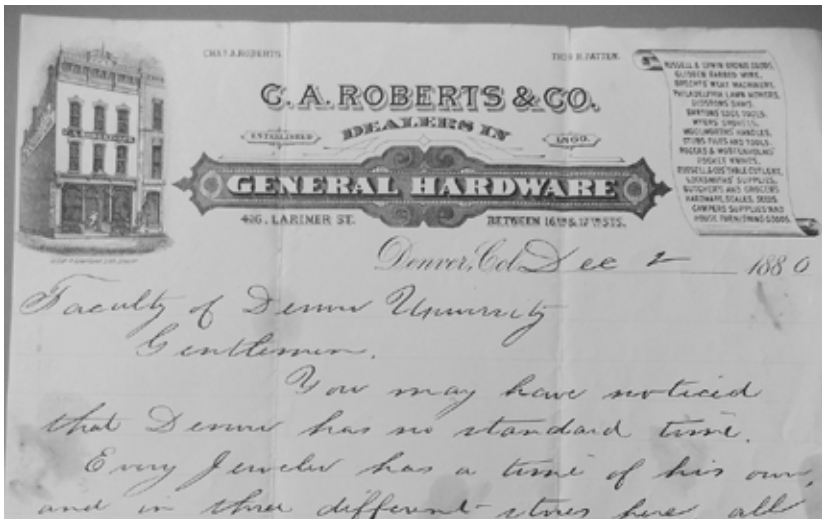 CHAS. A. ROBERTS.
THOS. H. PATTEN.
C. A. ROBERTS & CO.
DEALERS IN
ESTABLISHED 1860.
GENERAL HARDWARE
426. LARIMER ST. BETWEEN 16TH & 17TH STS.
RUSSELL & ERWIN BRONZE GOODS,
GLIDDEN BARBED WIRE,
PHILADELPHIA LAWN MOWERS,
DISSTONS SAWS,
BARTONS EDGE TOOLS,
MYERS
WOOLWORTHS HANDLES,
STUBS FILES AND TOOLS,
RODGERS & WOSTENHOLMS
POCKET KNIVES,
RUSSELL & COS TABLE CUTLERY,
LOCKSMITHS' SUPPLIES,
BUTCHERS AND GROCERS
HARDWARE, SCALES, SEEDS,
CAMPERS SUPPLIES AND
HOUSE FURNISHING GOODS.
Denver, Col. Dec 2 1880
Faculty of Denver University
Gentlemen.
You may have noticed
that Denver has no standard time.
Every Jeweler has a time of his own,
and in three different stores here all